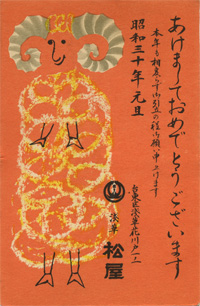 あけましておめでとうございます
本年も相変らず御引立の程御願い申上げます
昭和三十年元旦
台東区浅草花川戸一ノ一
浅草
松屋